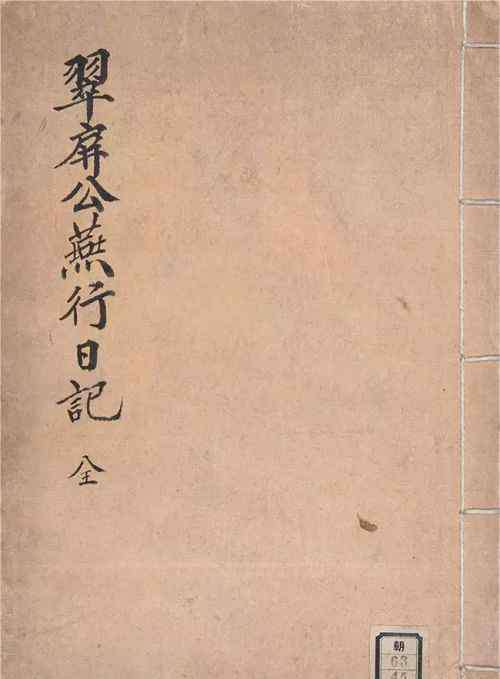 翠屏公燕行日記 全
朝
63
45